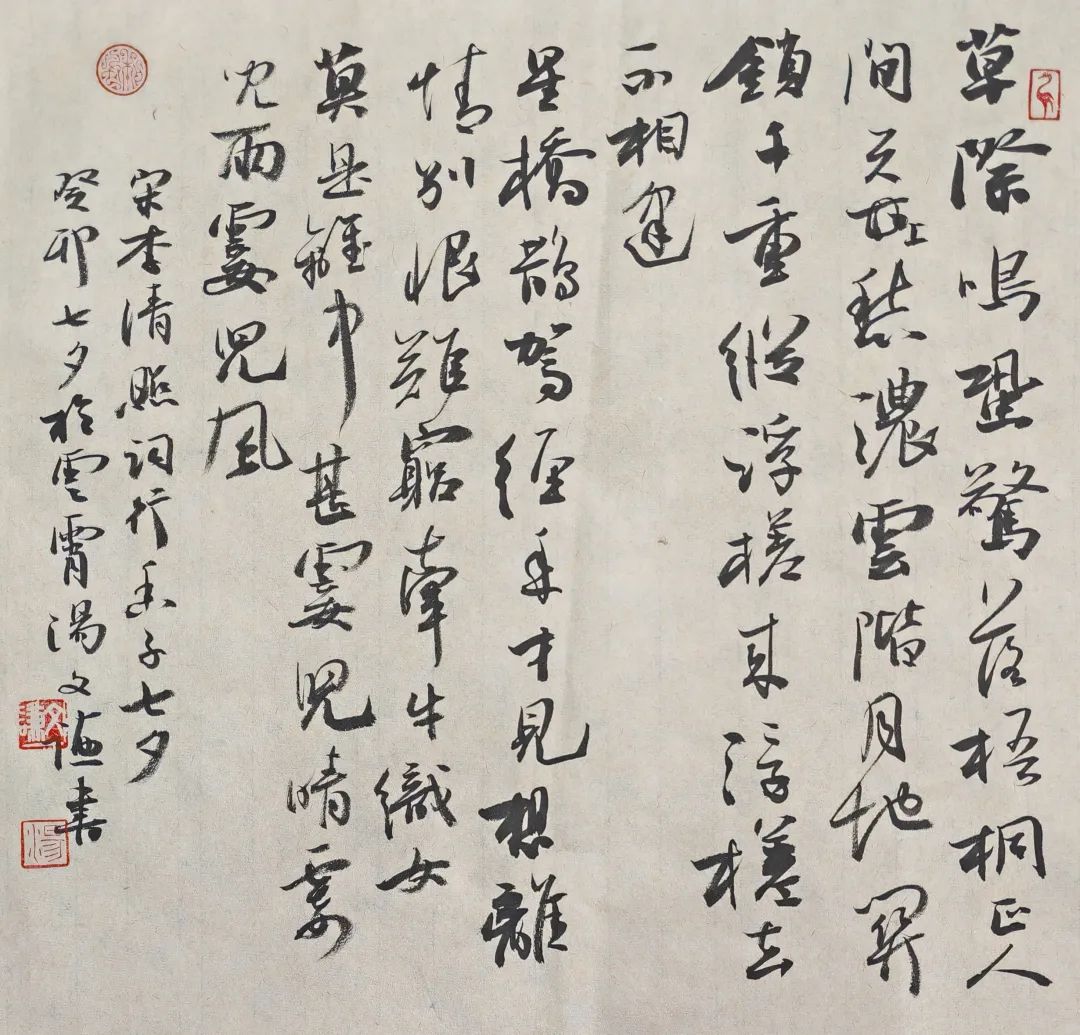 草際鳴蛩驚落梧桐正人
間天上愁濃雲階月地關
鎖千重縱浮槎來浮槎去
不相逢
星橋鵲駕經年才見想離
情別恨難窮牽牛織女
莫是離中甚霎兒晴霎
兒雨霎兒風
宋李清照詞行香子七夕
癸卯七夕於雲霄湯文書